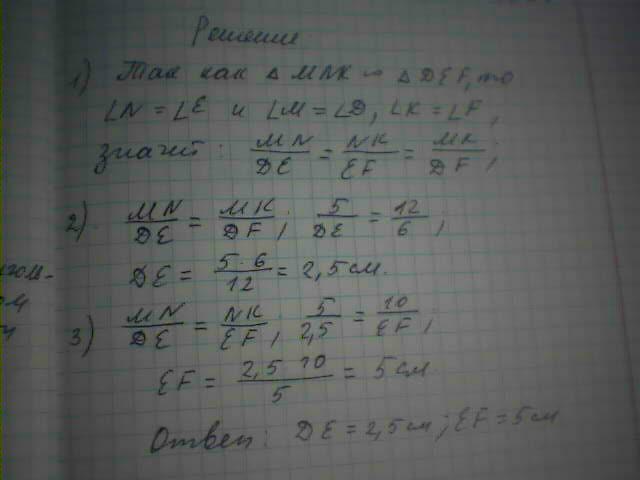 Решение
1) Так как △ MNK ~ △ DEF, то
∠N = ∠E и ∠M = ∠D, ∠K = ∠F,
значит: MN/DE = NK/EF = MK/DF;
2) MN/DE = MK/DF; 5/DE = 12/6;
DE = 5·6/12 = 2,5 см.
3) MN/DE = NK/EF; 5/2,5 = 10/EF;
EF = 2,5·10/5 = 5 см
Ответ: DE = 2,5 см; EF = 5 см